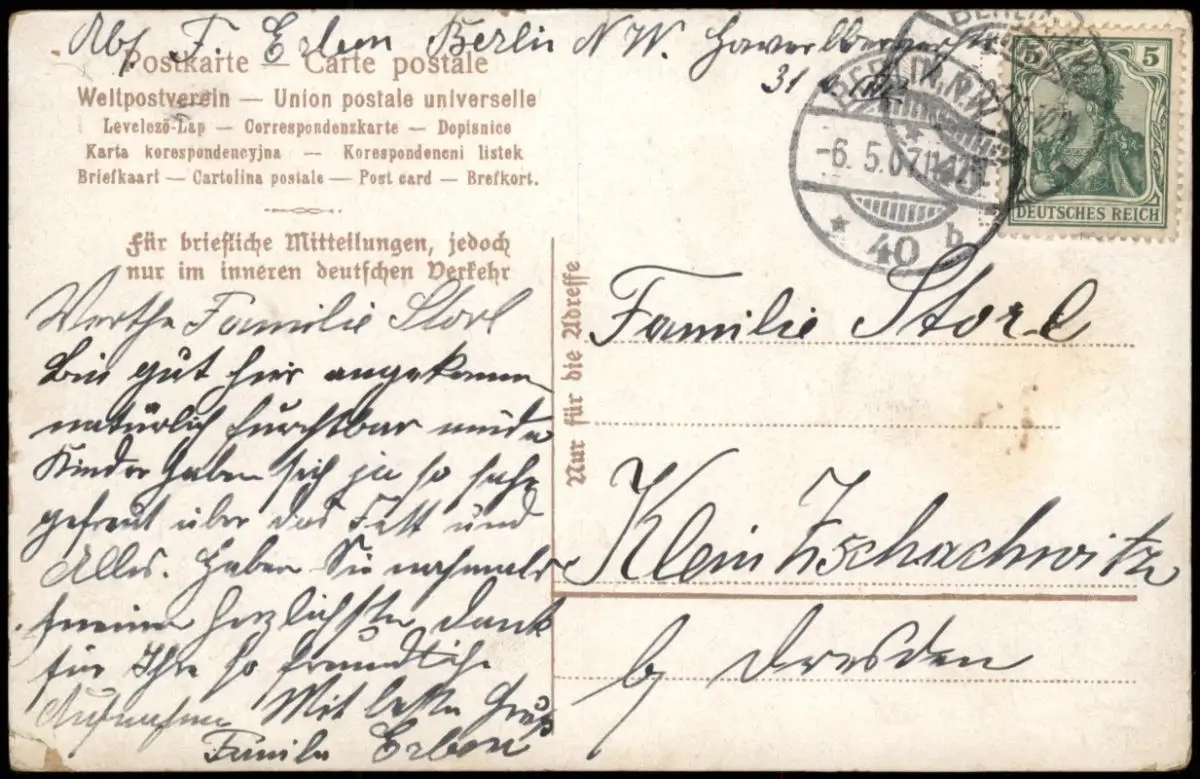 Abs. F. Erben Berlin N W. Havelbergerstr.
31
Postkarte — Carte postale
Weltpostverein — Union postale universelle
Levelező-Lap — Correspondenzkarte — Dopisnice
Karta korespondencyjna — Korespondencni listek
Briefkaart — Cartolina postale — Post card — Brefkort.
Für briefliche Mitteilungen, jedoch
nur im inneren deutschen Verkehr
Werthe Familie Storl
Bin gut hier angekomm
natürlich furchtbar müde
Kinder haben sich ja so sehr
gefreut über das Fett und
Alles. Haben Sie nochmals
meinen herzlichsten Dank
für Ihre so freundliche
Aufnahme Mit besten Gruß
Familie Erben
Nur für die Adresse
BERLIN, N.W.
-6.5.07.11-12
* 40 b
BERLIN
5 5
DEUTSCHES REICH
Familie Storl
Klein Zschachwitz
b/ Dresden